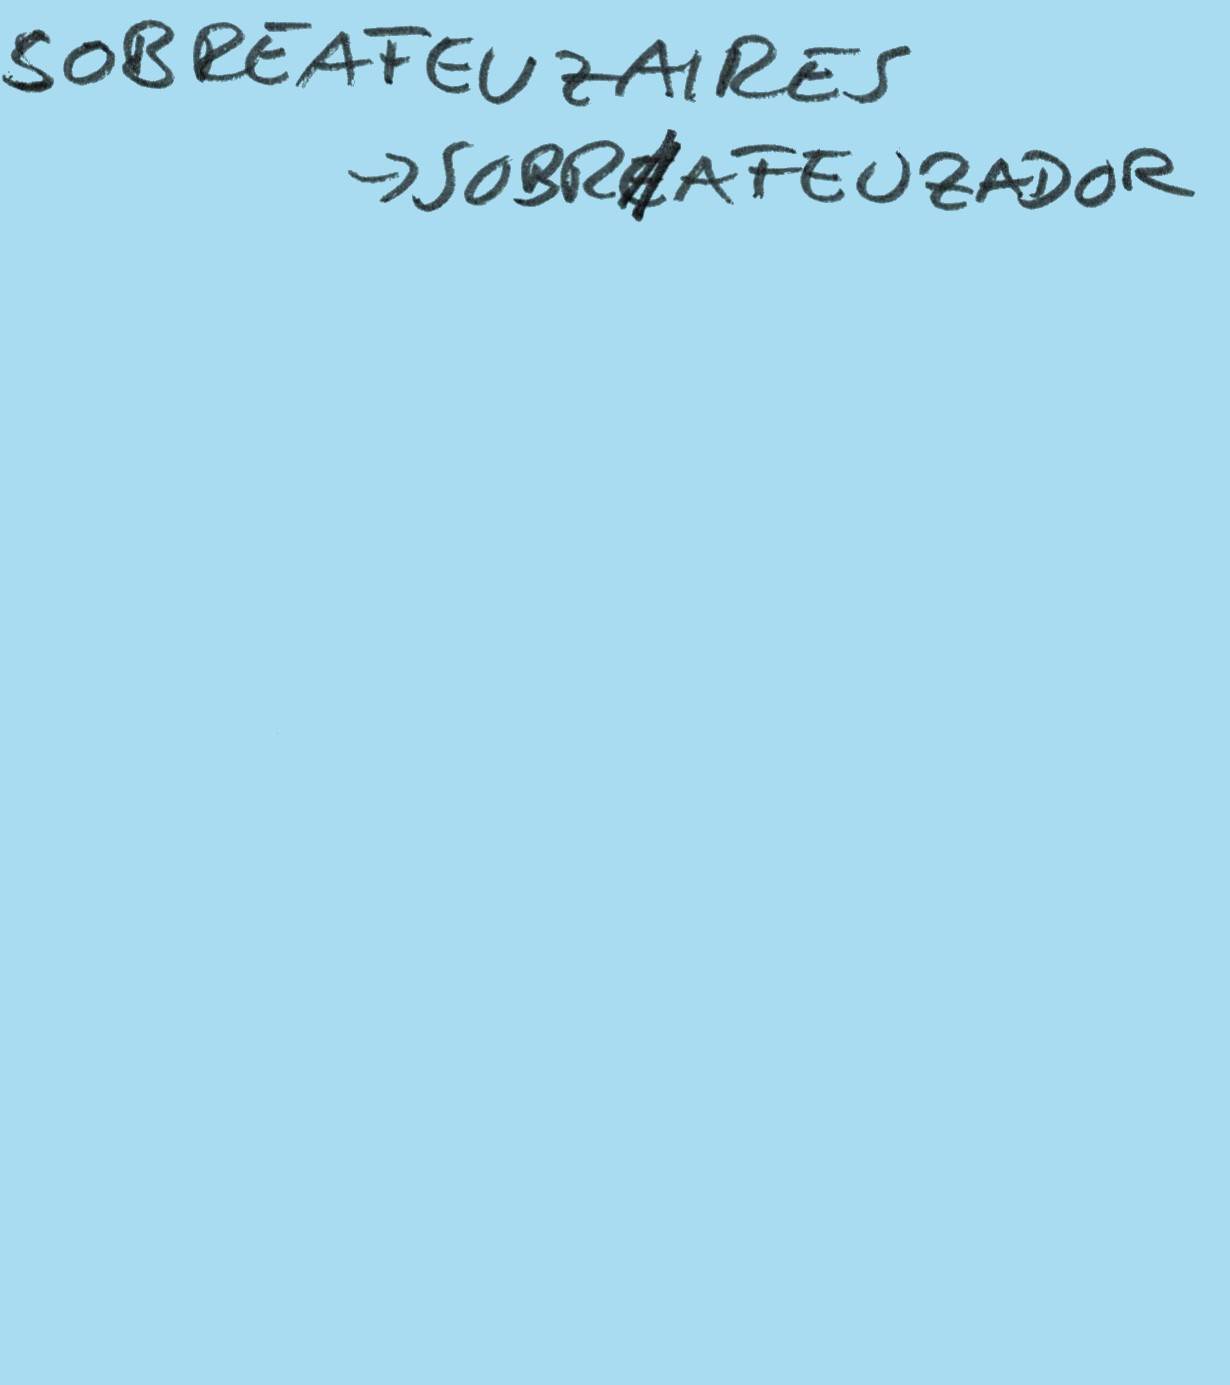 SOBREAFEUZAIRES
→SOBREAFEUZADOR